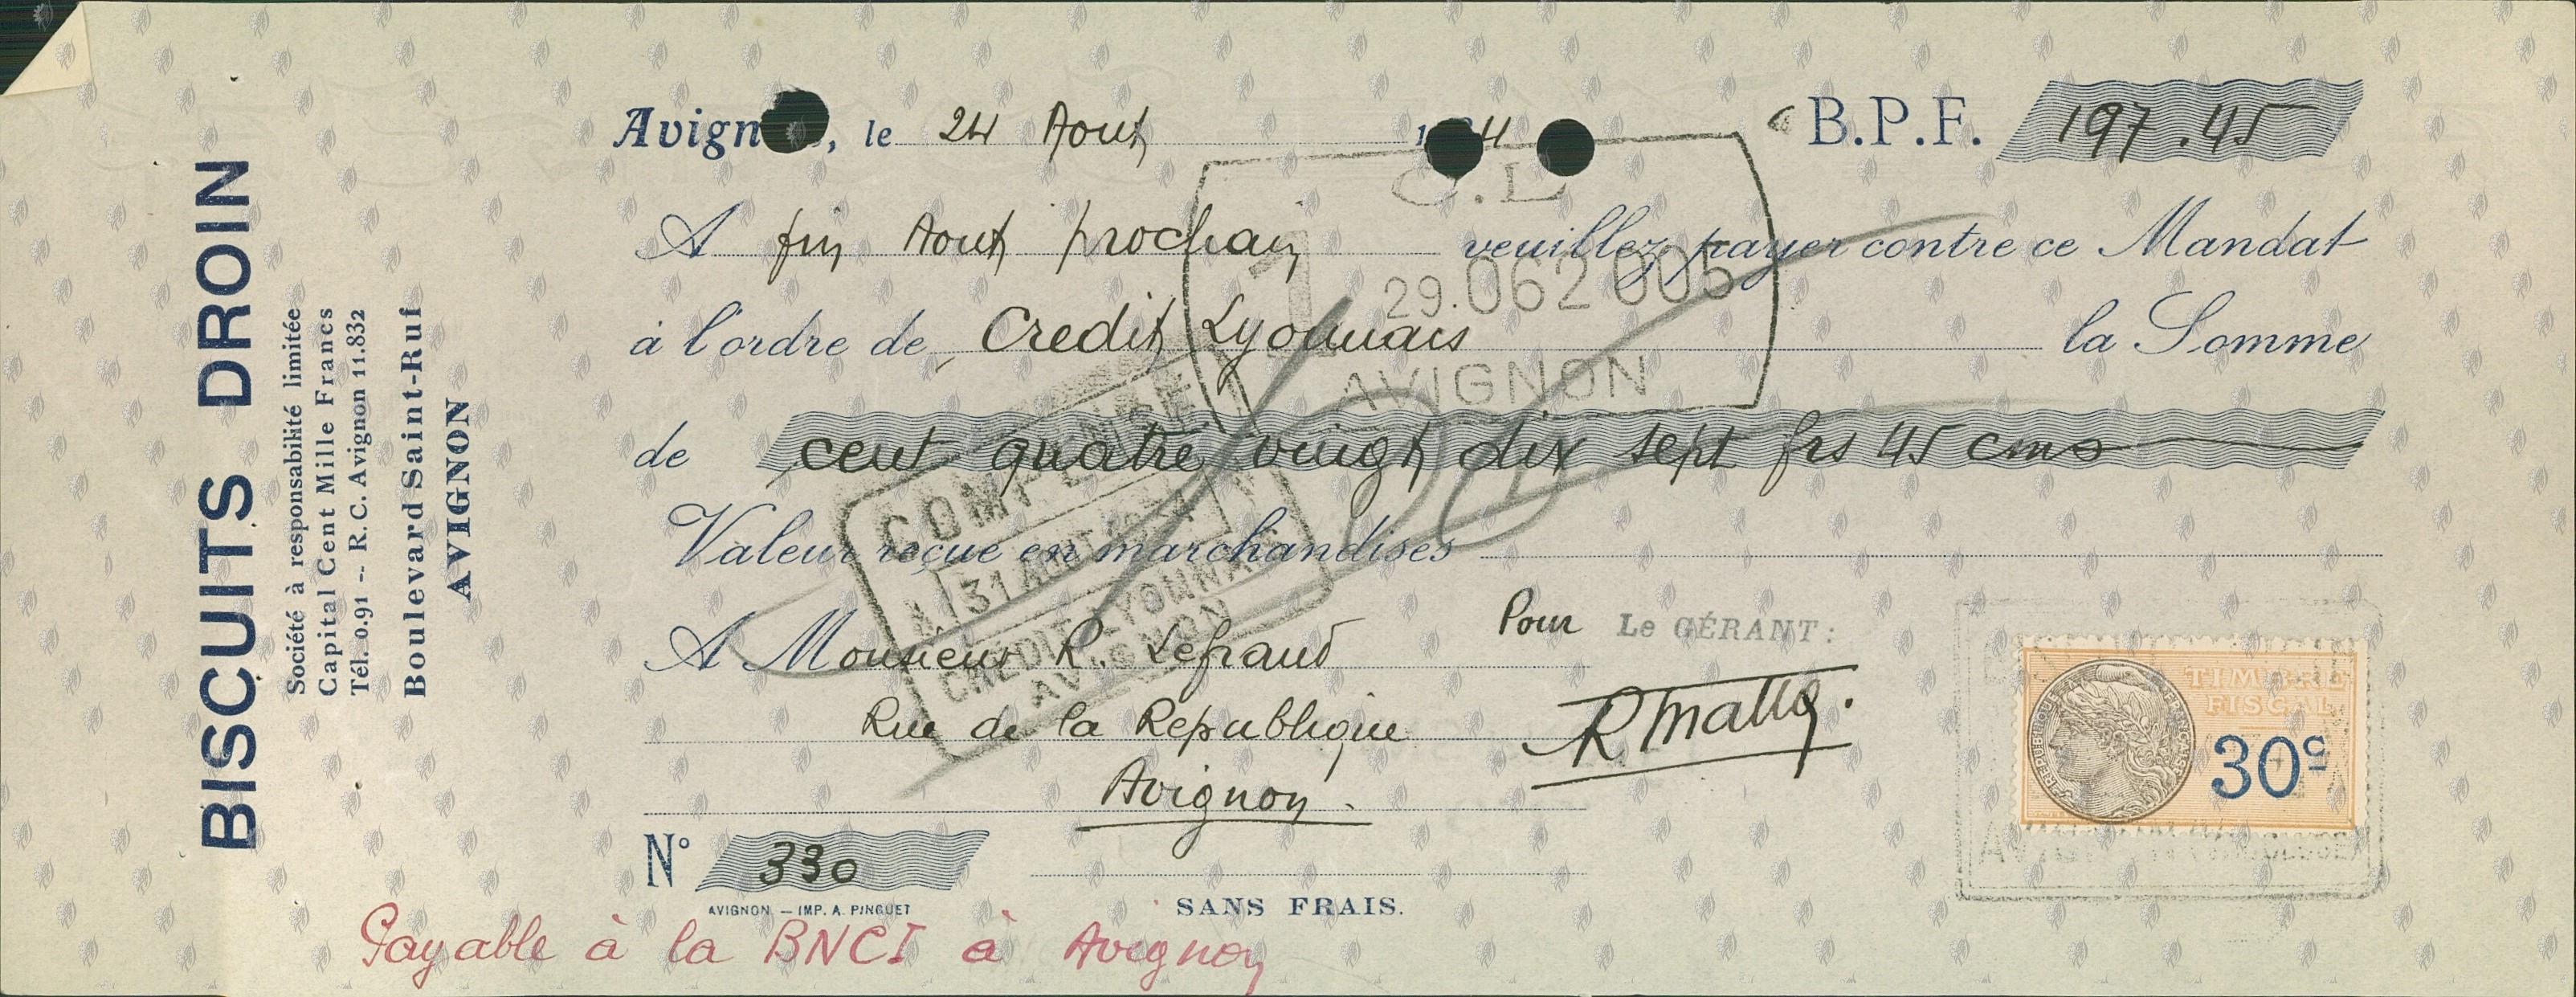 BISCUITS DROIN
Société à responsabilité limitée
Capital Cent Mille Francs
Tél. 0.91 -- R. C. Avignon 11.832
Boulevard Saint-Ruf
AVIGNON
Avign , le 24 Aout 1 4 B.P.F. 197.45
A fin Aout prochain veuillez payer contre ce Mandat
à l'ordre de Credit Lyonnais la Somme
de cent quatre vingt dix sept frs 45 cms
Valeur reçue en marchandises
A Monsieur R. Lefraud
Rue de la Republique
Avignon.
Pour Le GÉRANT:
N° 330
AVIGNON — IMP. A. PINGUET
SANS FRAIS.
Payable à la BNCI à Avignon
C.L
29.062 005
AVIGNON
31 AOUT
CREDIT LYONNAIS
AVIGNON
TIMBRE
FISCAL
30c